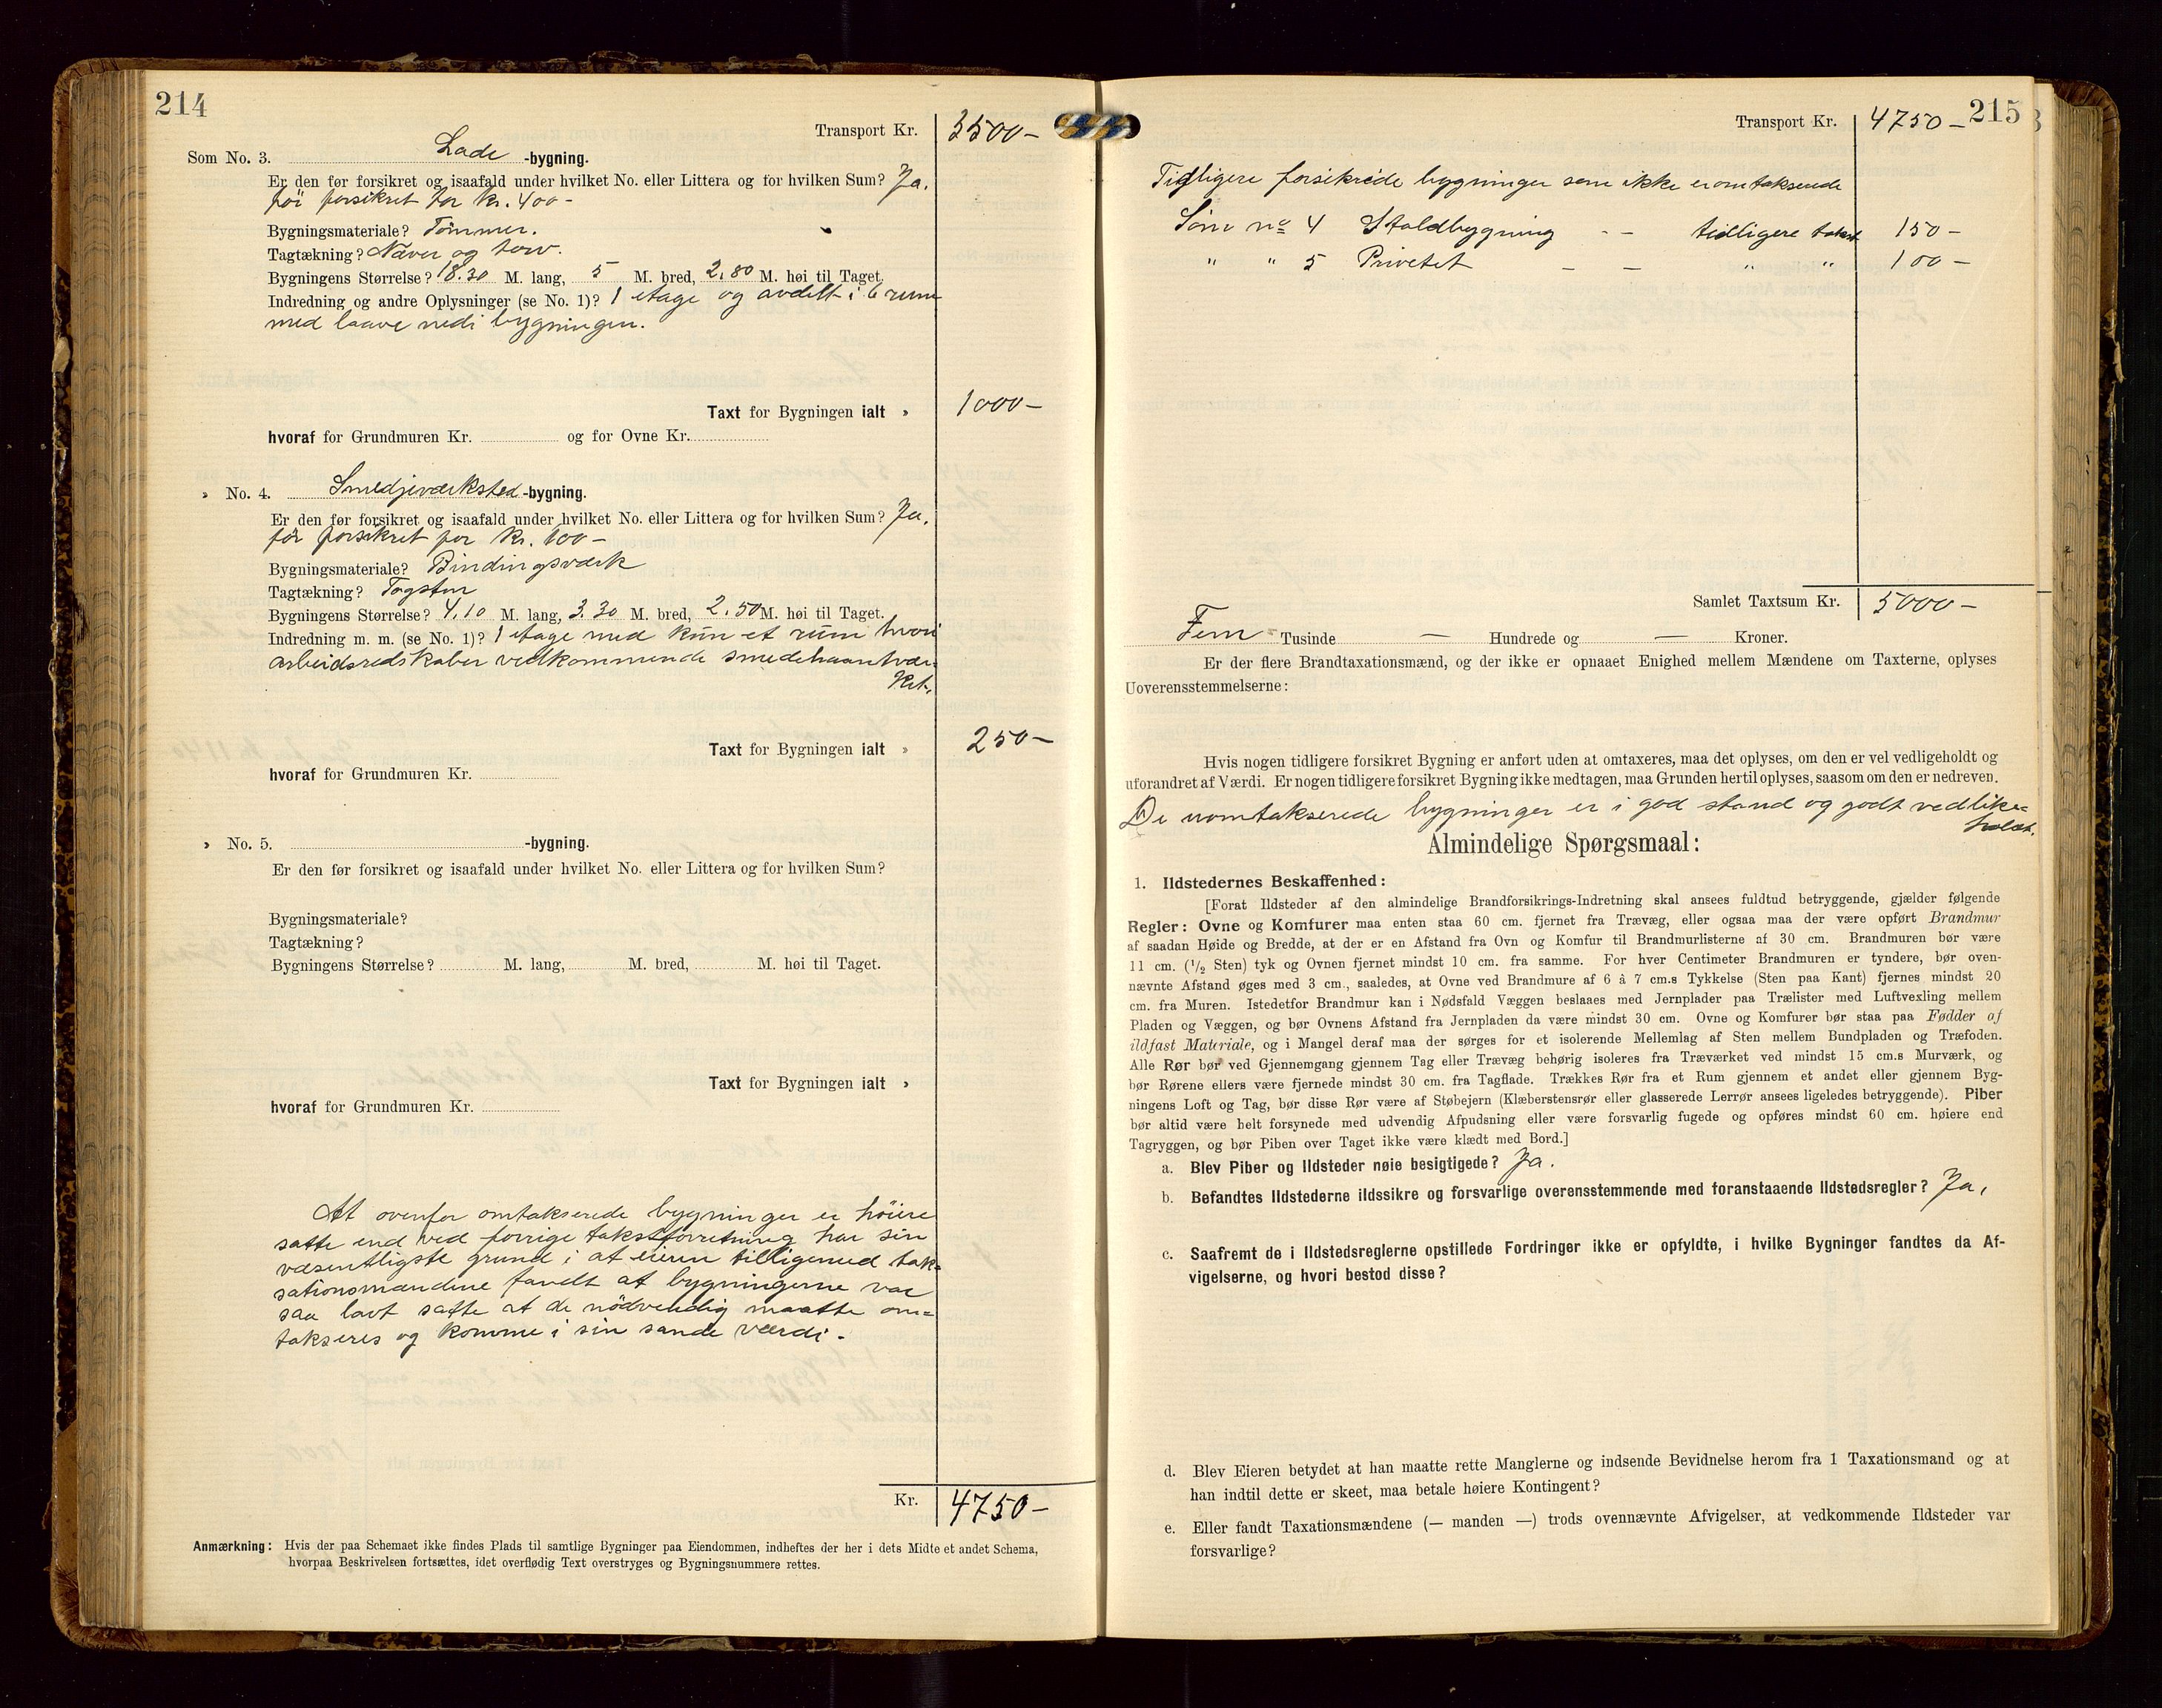 214
Transport Kr. 3500–
Som No. 3. Lade -bygning.
Er den før forsikret og isaafald under hvilket No. eller Littera og for hvilken Sum? Ja.
för forsikret for kr. 400–
Bygningsmateriale? Tömmer.
Tagtækning? Næver og torv.
Bygningens Størrelse? 18.30 M. lang, 5 M. bred, 2.80 M. høi til Taget.
Indredning og andre Oplysninger (se No. 1)? 1 etage og avdelt i 6 rum
med laave nedi bygningen.
Taxt for Bygningen ialt » 1000–
hvoraf for Grundmuren Kr. og for Ovne Kr.
» No. 4. Smedjeværksted -bygning.
Er den før forsikret og isaafald under hvilket No. eller Littera og for hvilken Sum? Ja.
för forsikret for kr. 100–
Bygningsmateriale? Bindingsværk
Tagtækning? Tagsten
Bygningens Størrelse? 4.10 M. lang, 3.30 M. bred, 2.50 M. høi til Taget.
Indredning m. m. (se No. 1)? 1 etage med kun et rum hvori
arbeidsredskaber vedkommende smedehaandvær-
ket.
Taxt for Bygningen ialt » 250–
hvoraf for Grundmuren Kr.
» No. 5. -bygning.
Er den før forsikret og isaafald under hvilket No. eller Littera og for hvilken Sum?
Bygningsmateriale?
Tagtækning?
Bygningens Størrelse? M. lang, M. bred, M. høi til Taget.
Taxt for Bygningen ialt »
hvoraf for Grundmuren Kr.
At ovenfor omtakserede bygninger er höiere
satte end ved forrige takstforretning har sin
væsentligste grund i at eieren tilligemed tak-
sationsmændene fandt at bygningerne var
saa lavt satte at de nödvendig maatte om-
takseres og komme i sin sande værdi.
Kr. 4750–
Anmærkning: Hvis der paa Schemaet ikke findes Plads til samtlige Bygninger paa Eiendommen, indheftes der her i dets Midte et andet Schema,
hvorpaa Beskrivelsen fortsættes, idet overflødig Text overstryges og Bygningsnummere rettes.
215
Transport Kr. 4750–
Tidligere forsikrede bygninger som ikke er omtakserede
Som no 4 Staldbygning – – tidligere takst 150–
" " 5 Privetet – – " " 100–
Samlet Taxtsum Kr. 5000–
Fem Tusinde — Hundrede og — Kroner.
Er der flere Brandtaxationsmænd, og der ikke er opnaaet Enighed mellem Mændene om Taxterne, oplyses
Uoverensstemmelserne:
Hvis nogen tidligere forsikret Bygning er anført uden at omtaxeres, maa det oplyses, om den er vel vedligeholdt og
uforandret af Værdi. Er nogen tidligere forsikret Bygning ikke medtagen, maa Grunden hertil oplyses, saasom om den er nedreven.
De uomtakserede bygninger er i god stand og godt vedlike-
holdt.
Almindelige Spørgsmaal:
1. Ildstedernes Beskaffenhed:
[Forat Ildsteder af den almindelige Brandforsikrings-Indretning skal ansees fuldtud betryggende, gjælder følgende
Regler: Ovne og Komfurer maa enten staa 60 cm. fjernet fra Trævæg, eller ogsaa maa der være opført Brandmur
af saadan Høide og Bredde, at der er en Afstand fra Ovn og Komfur til Brandmurlisterne af 30 cm. Brandmuren bør være
11 cm. (1/2 Sten) tyk og Ovnen fjernet mindst 10 cm. fra samme. For hver Centimeter Brandmuren er tyndere, bør oven-
nævnte Afstand øges med 3 cm., saaledes, at Ovne ved Brandmure af 6 à 7 cm.s Tykkelse (Sten paa Kant) fjernes mindst 20
cm. fra Muren. Istedetfor Brandmur kan i Nødsfald Væggen beslaaes med Jernplader paa Trælister med Luftvexling mellem
Pladen og Væggen, og bør Ovnens Afstand fra Jernpladen da være mindst 30 cm. Ovne og Komfurer bør staa paa Fødder af
ildfast Materiale, og i Mangel deraf maa der sørges for et isolerende Mellemlag af Sten mellem Bundpladen og Træfoden.
Alle Rør bør ved Gjennemgang gjennem Tag eller Trævæg behørig isoleres fra Træværket ved mindst 15 cm.s Murværk, og
bør Rørene ellers være fjernede mindst 30 cm. fra Tagflade. Trækkes Rør fra et Rum gjennem et andet eller gjennem Byg-
ningens Loft og Tag, bør disse Rør være af Støbejern (Klæberstensrør eller glasserede Lerrør ansees ligeledes betryggende). Piber
bør altid være helt forsynede med udvendig Afpudsning eller være forsvarlig fugede og opføres mindst 60 cm. høiere end
Tagryggen, og bør Piben over Taget ikke være klædt med Bord.]
a. Blev Piber og Ildsteder nøie besigtigede? Ja.
b. Befandtes Ildstederne ildssikre og forsvarlige overensstemmende med foranstaaende Ildstedsregler? Ja,
c. Saafremt de i Ildstedsreglerne opstillede Fordringer ikke er opfyldte, i hvilke Bygninger fandtes da Af-
vigelserne, og hvori bestod disse?
d. Blev Eieren betydet at han maatte rette Manglerne og indsende Bevidnelse herom fra 1 Taxationsmand og at
han indtil dette er skeet, maa betale høiere Kontingent?
e. Eller fandt Taxationsmændene (— manden —) trods ovennævnte Afvigelser, at vedkommende Ildsteder var
forsvarlige?